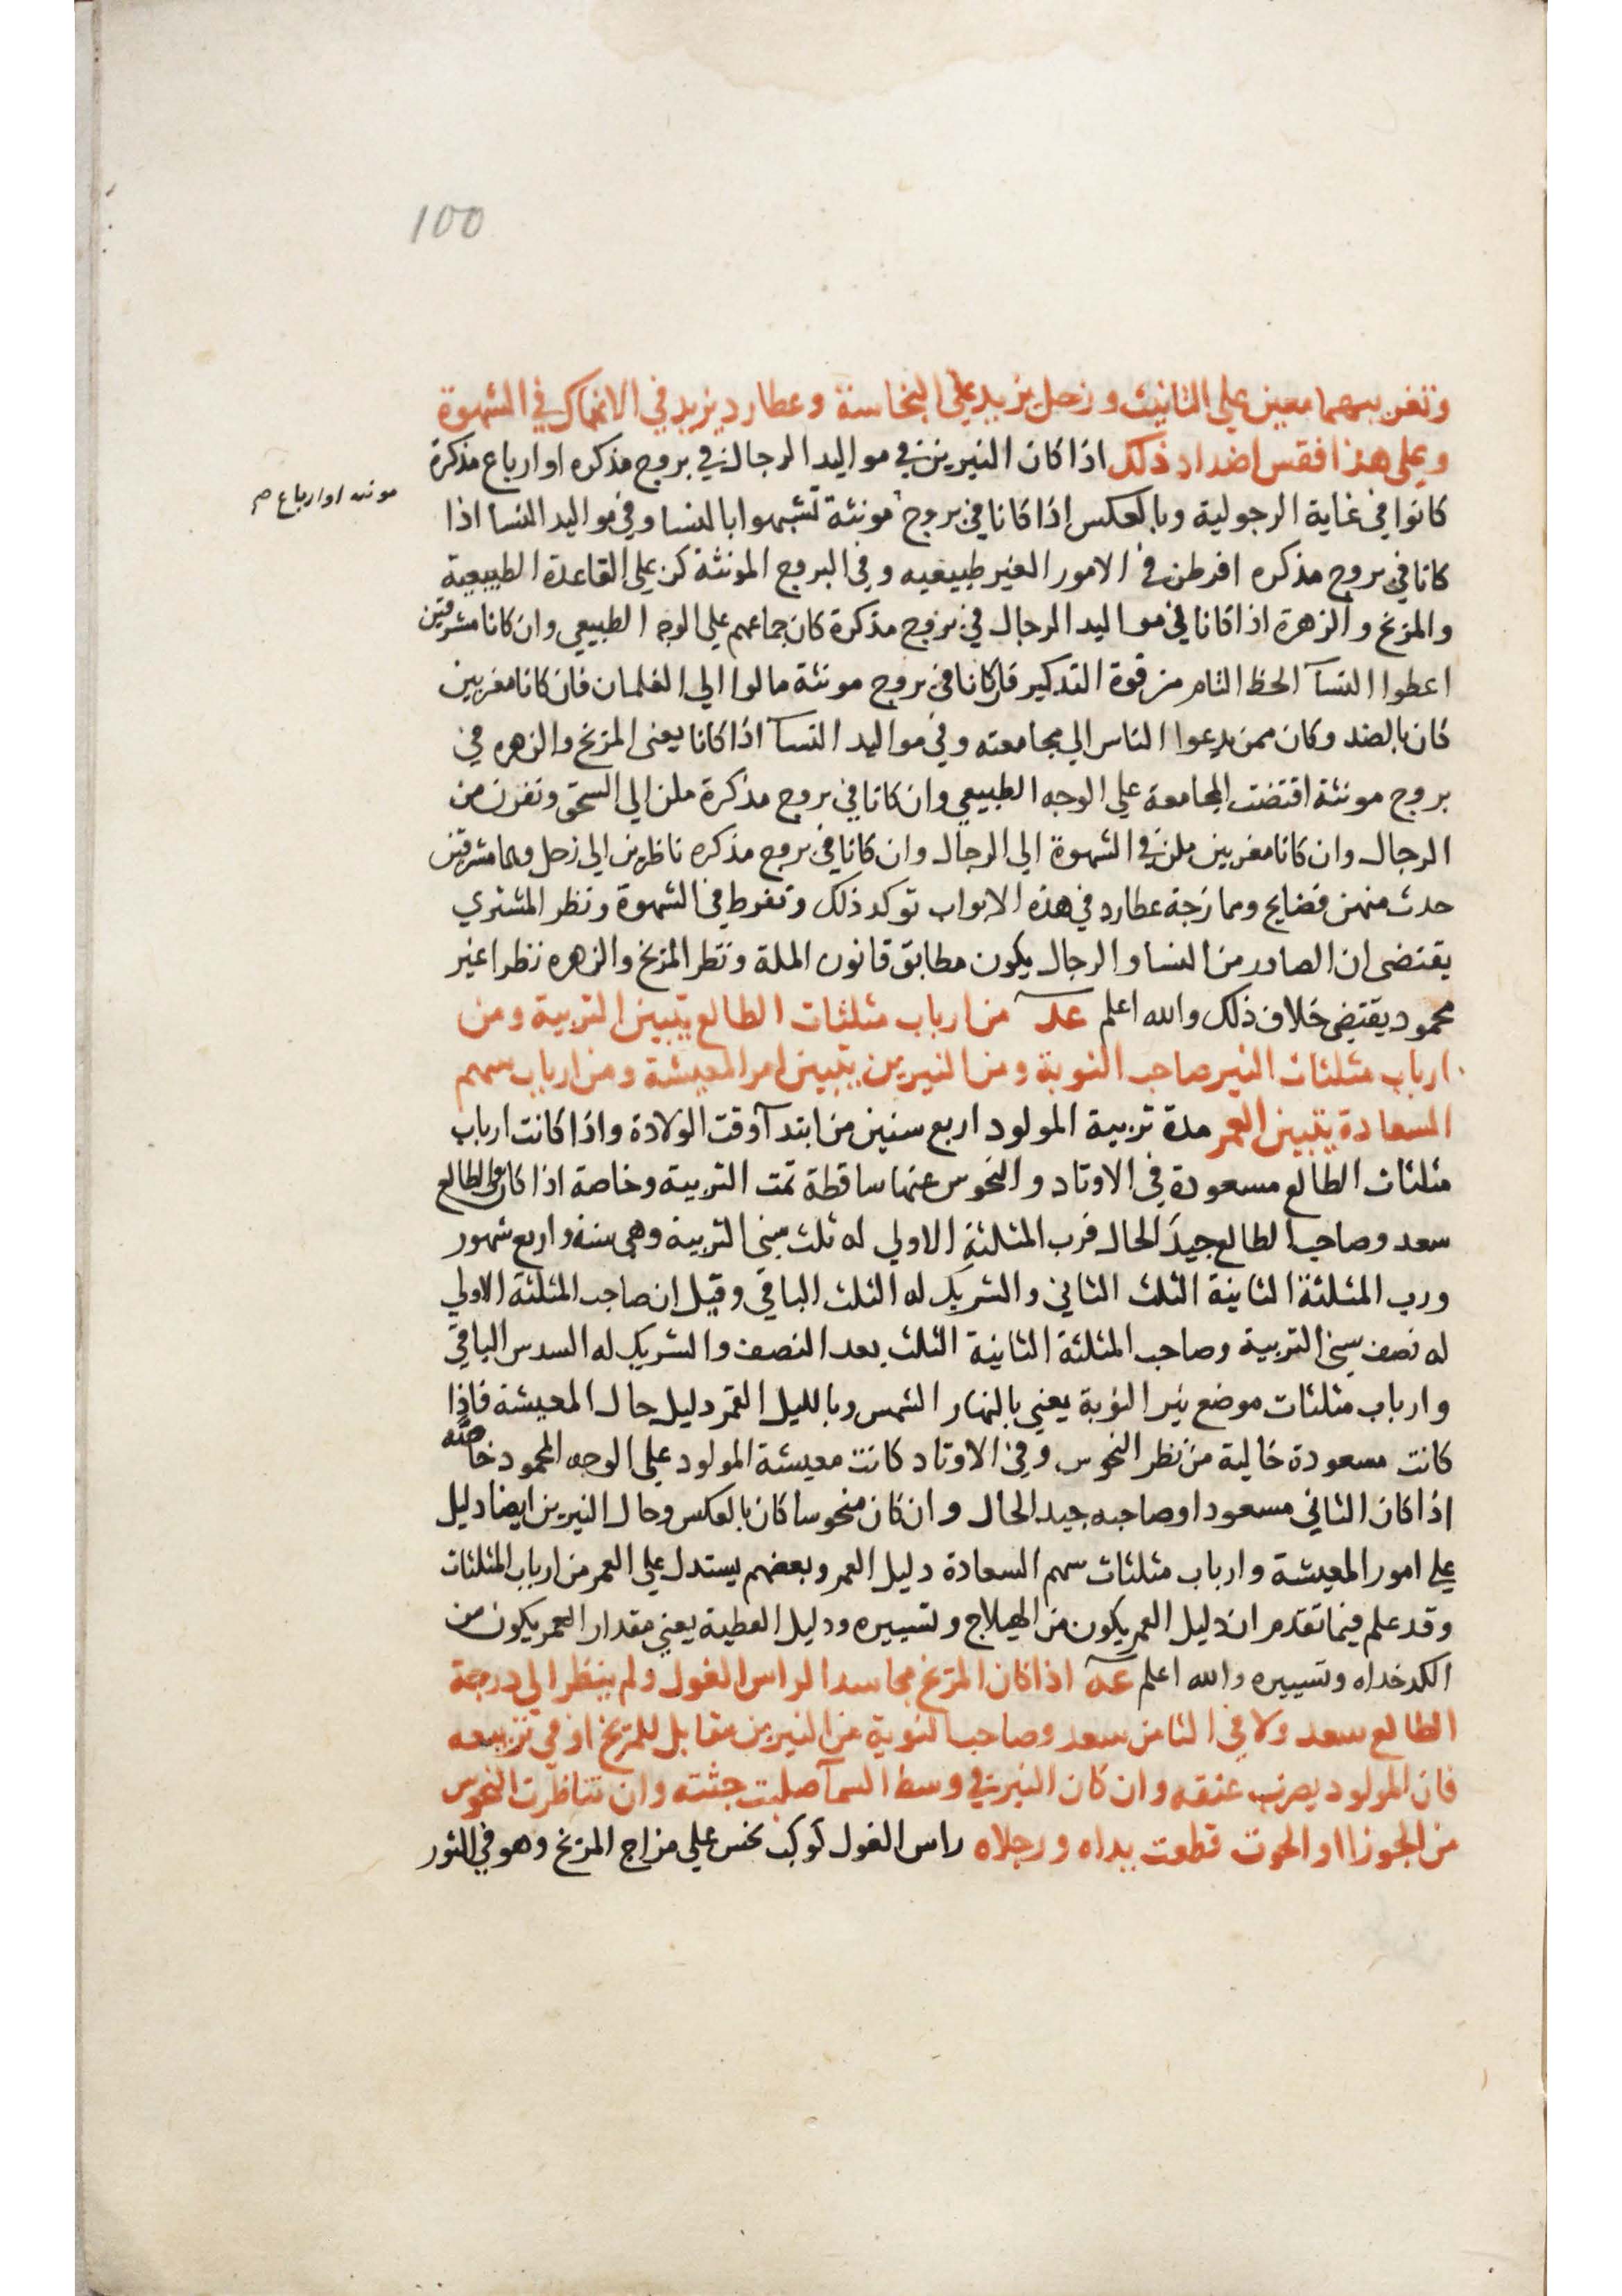 100
وتغريبهما معين على التانيث وزحل يزيد على النجاسة وعطارد يزيد في الانهماك في الشهوة
وعلى هذا فقس اضداد ذلك اذا كان النيرين في مواليد الرجال في بروج مذكره او ارباع مذكرة
كانوا في غاية الرجولية وبالعكس اذا كانا في بروج مونثة تشبهوا بالنسا وفي مواليد النسا اذا
مونثه او ارباع م
كانا في بروج مذكره افرطن في الامور الغير طبيعيه وفي البروج المونثة كن على القاعدة الطبيعية
والمريخ والزهرة اذا كانا في مواليد الرجال في بروج مذكرة كان جماعهم على الوجه الطبيعي وان كانا مشرقين
اعطوا النسآ الحظ التام من قوة التذكير فان كانا في بروج مونثة مالوا الي الغلمان فان كانا مغربين
كان بالضد وكان ممن يدعوا الناس الي مجامعته وفي مواليد النسآ اذا كانا يعني المريخ والزهره في
بروج مونثة اقتضت المجامعة علي الوجه الطبيعي وان كانا في بروج مذكرة ملن الي السحق ونفرن من
الرجال وان كانا مغربين ملن في الشهوة الي الرجال وان كانا في بروج مذكره ناظرين الي زحل وهما مشرقين
حدث منهن فضايح وممازجة عطارد في هذه الابواب توكد ذلك وتفرط في الشهوة ونظر المشتري
يقتضي ان الصادر من النسا والرجال يكون مطابق قانون الملة ونظر المريخ والزهره نظرا غير
محمود يقتضي خلاف ذلك والله اعلم عد من ارباب مثلثات الطالع يتبين التربية ومن
ارباب مثلثات النير صاحب النوبة ومن النيرين يتبين امر المعيشة ومن ارباب سهم
السعادة يتبين العمر مدة تربية المولود اربع سنين من ابتدآ وقت الولادة واذا كانت ارباب
مثلثات الطالع مسعودة في الاوتاد والنحوس عنها ساقطة تمت التربية وخاصة اذا كان في الطالع
سعد وصاحب الطالع جيد الحال فرب المثلثة الاولي له ثلث سني التربية وهي سنة واربع شهور
ورب المثلثة الثانية الثلث الثاني والشريك له الثلث الباقي وقيل ان صاحب المثلثة الاولي
له نصف سني التربية وصاحب المثلثة الثانية الثلث بعد النصف والشريك له السدس الباقي
وارباب مثلثات موضع نير النوبة يعني بالنهار الشمس وبالليل القمر دليل حال المعيشة فاذا
كانت مسعودة خالية من نظر النحوس وفي الاوتاد كانت معيشة المولود على الوجه المحمود خاصة
اذا كان الثاني مسعودا وصاحبه جيد الحال وان كان منحوسا كان بالعكس وحال النيرين ايضا دليل
علي امور المعيشة وارباب مثلثات سهم السعادة دليل العمر وبعضهم يستدل علي العمر من ارباب المثلثات
وقد علم فيما تقدم ان دليل العمر يكون من الهيلاج وتسييره ودليل العطية يعني مقدار العمر يكون من
الكدخداه وتسييره والله اعلم عه اذا كان المريخ مجاسدا لراس الغول ولم ينظر الي درجة
الطالع سعد ولا في الثامن سعد وصاحب النوبة من النيرين مقابل للمريخ او في تربيعه
فان المولود يضرب عنقه وان كان النيرين في وسط السمآ صلبت جثته وان تناظرت النحوس
من الجوزا او الحوت قطعت يداه ورجلاه راس الغول كوكب نحس على مزاج المريخ وهو في الثور